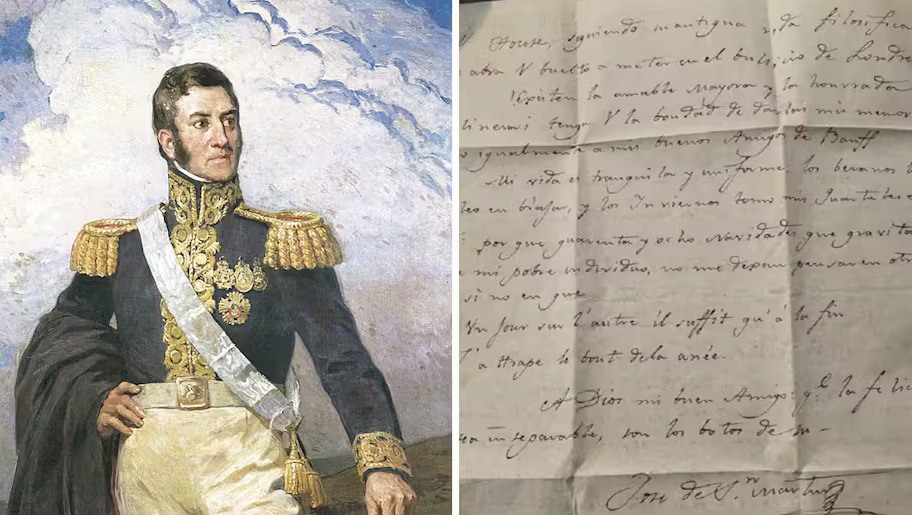 House, siguiendo su antigua vida filosofica
abra V buelto a meter en el bullicio de Londre
Existen la amable Mayora y la honrrada
tenga V la bondad de darlas mis memor
igualmente a mis buenos Amigos de Banff
Mi vida es tranquila y uniforme los beranos l
leo en biajar, y los Inviernos tomo mis Cuarteles
por que quarenta y ocho Navidades que gravita
mi pobre individuo, no me dexan pensar en otr
si no en que
Un Jour sur l'autre il suffit qu'à la fin
J'attrape le bout de la anée.
A Dios mi buen Amigo: qe la felic
sea inseparable, son los botos de su
Jose de Sn Martin